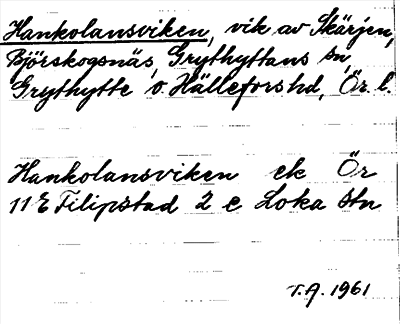 Hankolansviken, vik av Skärjen,
Björskogsnäs, Grythyttans sn,
Grythytte o. Hällefors hd, Ör. l.
Hankolansviken ek Ör
11 E Filipstad 2 e Loka stn
T.A. 1961